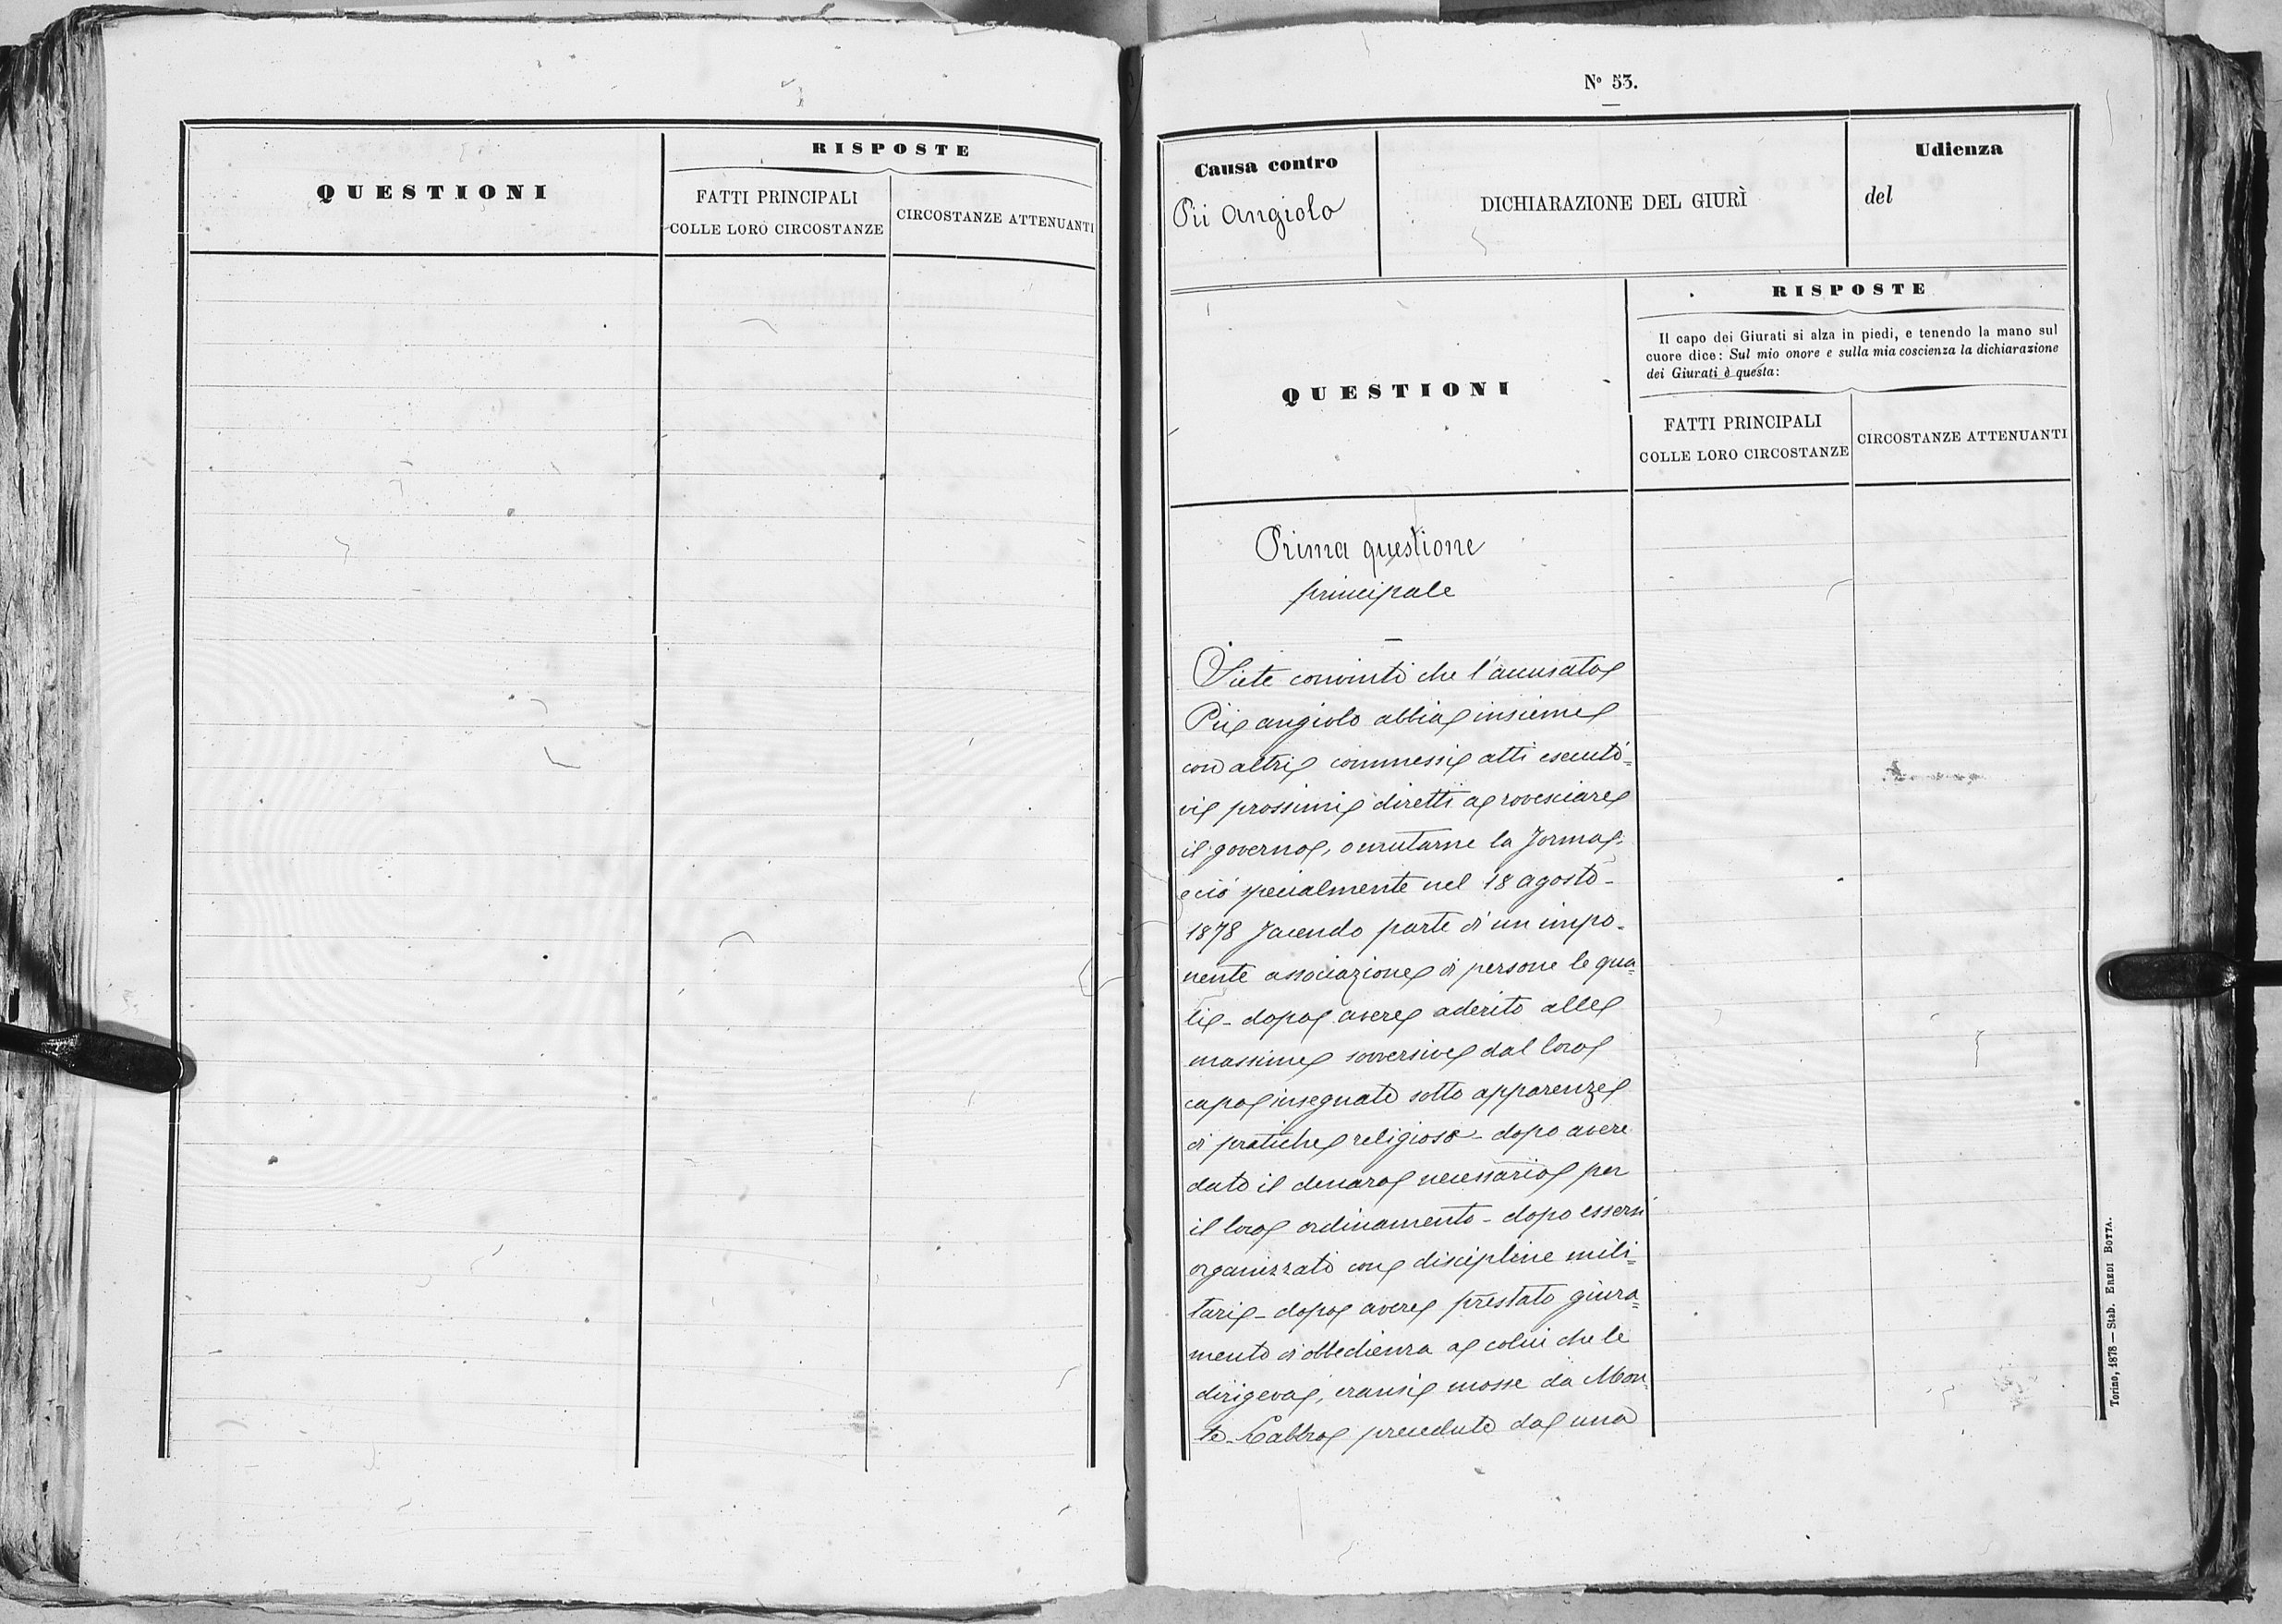 QUESTIONI
RISPOSTE
FATTI PRINCIPALI
COLLE LORO CIRCOSTANZE
CIRCOSTANZE ATTENUANTI
Nº 53.
Causa contro
Pii Angiolo
DICHIARAZIONE DEL GIURÌ
Udienza
del
QUESTIONI
RISPOSTE
Il capo dei Giurati si alza in piedi, e tenendo la mano sul
cuore dice: Sul mio onore e sulla mia coscienza la dichiarazione
dei Giurati è questa:
FATTI PRINCIPALI
COLLE LORO CIRCOSTANZE
CIRCOSTANZE ATTENUANTI
Prima questione
principale
Siete convinti che l'accusato
Pii Angiolo abbia insieme
con altri commessi atti esecuti=
vi prossimi diretti a rovesciare
il governo, o mutarne la forma,
e ciò specialmente nel 18 agosto
1878 facendo parte di un impo-
nente associazione di persone le qua=
li - dopo avere aderito alle
massime sovversive dal loro
capo insegnate sotto apparenze
di pratiche religiose - dopo avere
dato il denaro necessario per
il loro ordinamento - dopo essersi
organizzate con discipline mili=
tari - dopo avere prestato giura=
mento di obbedienza a colui che le
dirigeva, eransi mosse da Mon=
te Labbro precedute da una
Torino, 1878 — Stab. EREDI BOTTA.